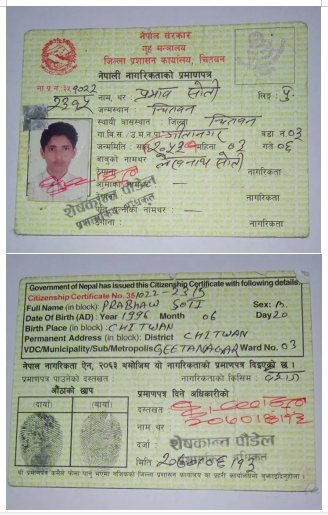 नेपाल सरकार
गृह मन्त्रालय
जिल्ला प्रशासन कार्यालय, चितवन
नेपाली नागरिकताको प्रमाणपत्र
ना.प्र.नं. ३५ १०२२
२३१५
नाम, थर : प्रभाव सोती लिङ्ग : पु.
जन्मस्थान : चितवन
स्थायी बासस्थान : जिल्ला चितवन
गा.वि.स. / उ.म.न.पा. गीतानगर वडा नं ०३
जन्ममिति : महिना ०३ गते ०६
बाबुको नामथर : सोती
ठेगाना : नागरिकता
आमाको नामथर : —
नागरिकता
पति/पत्नीको नामथर : —
ठेगाना : नागरिकता
शेषकान्त पौडेल
Government of Nepal has issued this Citizenship Certificate with following details.
Citizenship Certificate No. 35/1022-2315
Full Name (in block): PRABHAW SOTI Sex: M.
Date Of Birth (AD) : Year 1996 Month 06 Day 20
Birth Place (in block) : CHITWAN
Permanent Address (in block): District CHITWAN
VDC/Municipality/Sub/Metropolis GEETANAGAR Ward No. 03
नेपाल नागरिकता ऐन, २०६३ बमोजिम यो नागरिकताको प्रमाणपत्र दिइएको छ ।
प्रमाणपत्र पाउनेको दस्तखत : नागरिकताको किसिम
औंठाको छाप प्रमाणपत्र दिने अधिकारीको
(दायाँ) (बायाँ) दस्तखत
नाम थर
दर्जा : शेषकान्त पौडेल
मिति